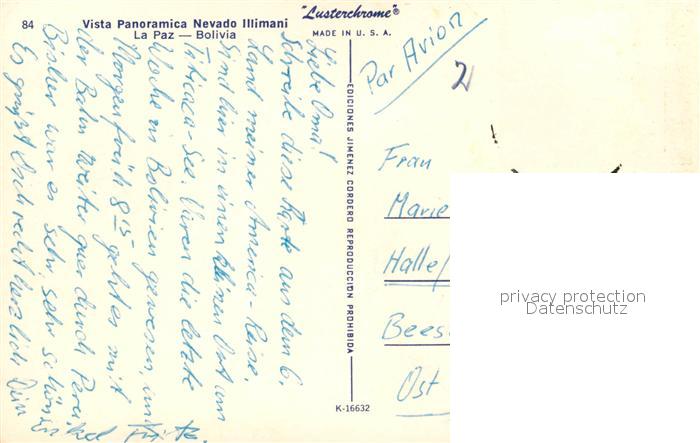 "Lusterchrome"®
MADE IN U. S. A.
84 Vista Panoramica Nevado Illimani
La Paz — Bolivia
Liebe Oma!
Schreibe diese Karte aus dem 6.
Land meiner America-Reise.
Sind hier in einem kleinen Ort am
Titicaca-See. Waren die letzte
Woche in Bolivien gewesen, und
Morgen früh 8 15 geht es mit
der Bahn weiter quer durch Peru
Bisher war es sehr, sehr schön
Es grüßt Dich recht herzlich Dein
EDICIONES JIMENEZ CORDERO REPRODUCCIÓN PROHIBIDA
K-16632
Par Avion
Frau
Marie
Halle/
Bees
Ost
privacy protection
Datenschutz